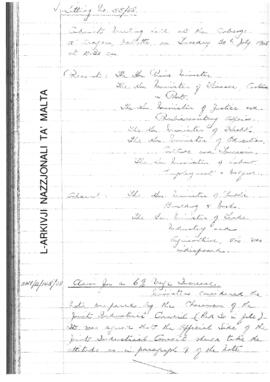 Sitting No. 55/65.
Cabinet Meeting held at the Auberge
d'Aragon, Valletta, on Tuesday 20th July 1965
at
Present: The Hon Prime Minister
The Hon Minister of Finance, Customs
& Ports
The Hon Minister of Justice and
Parliamentary Affairs
The Hon Minister of Health
The Hon Minister of Education
Culture and Tourism
The Hon Minister of Labour
Employment & Welfare
Absent: The Hon Minister of Public
Building & Works
The Hon Minister of Trade
Industry and
Agriculture, who was
indisposed.
Claim for a 6% Wage Increase
Ministers considered the
note prepared by the Chairman of the
Joint Industrial Council
It was agreed that the Official Side of the
Joint Industrial Council should take the
attitude as in paragraph 4 of the note
L-ARKIVJI NAZZJONALI TA' MALTA